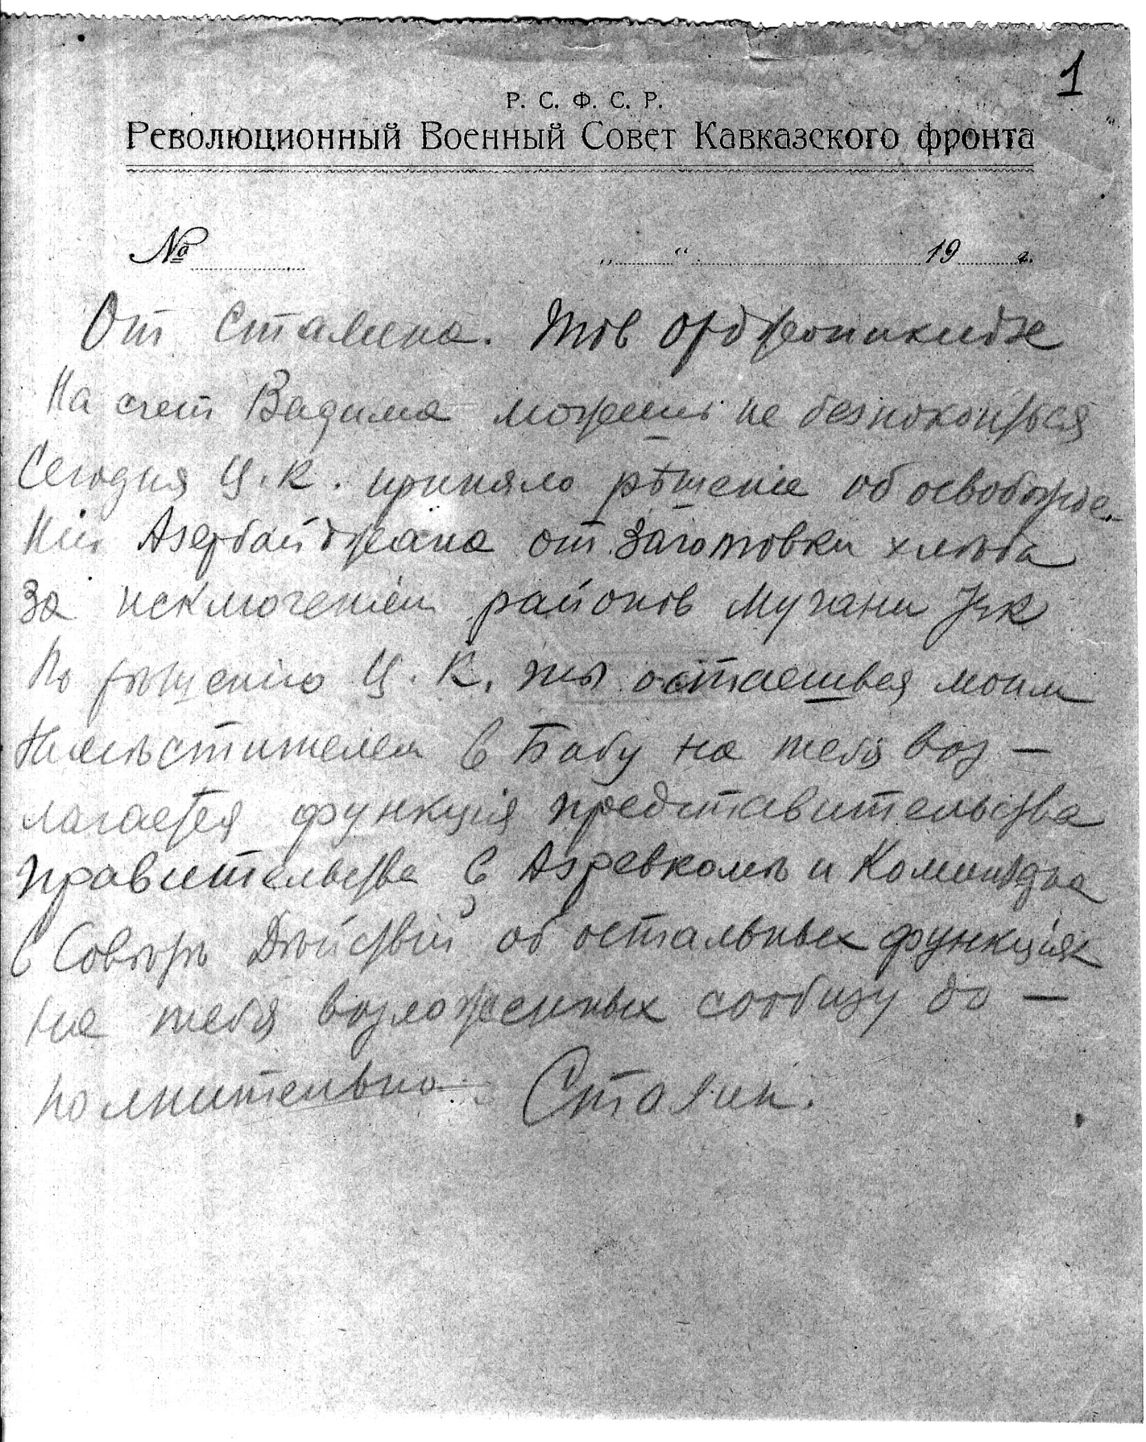 1
Р. С. Ф. С. Р.
Революционный Военный Совет Кавказского фронта
№ „ “ 19 г.
От Сталина. Тов Орджоникидзе
На счет Вадима можешь не безпокоиться
Сегодня Ц.К. приняло рѣшенiе об освобожде-
нiи Азербайджана от заготовки хлѣба
за исключенiем районов Мугани
По рѣшенiю Ц.К. ты остаешься моим
Замѣстителем в Баку на тебя воз-
лагается функцiя представительства
правительства в Азревкомѣ и
в Совѣтѣ Дѣйствiй об остальных функцiях
на тебя возложенных сообщу до-
полнительно. Сталин.